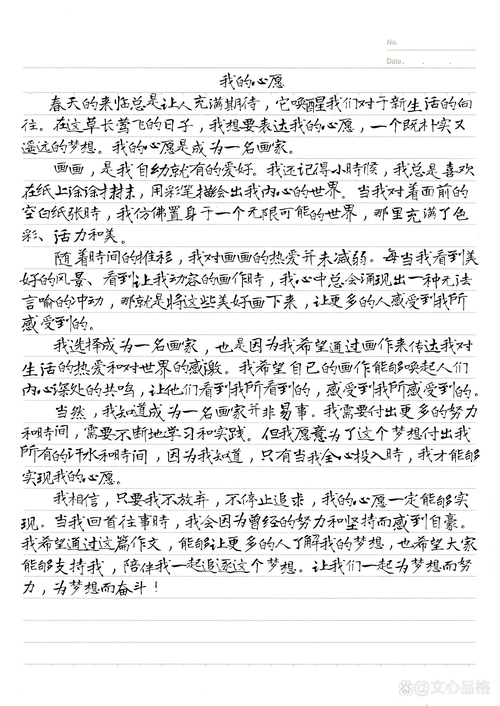 No.
Date. . .
我的心愿
春天的来临总是让人充满期待，它唤醒我们对于新生活的向
往。在这草长莺飞的日子，我想要表达我的心愿，一个既朴实又
遥远的梦想。我的心愿是成为一名画家。
画画，是我自幼就有的爱好。我还记得小时候，我总是喜欢
在纸上涂涂抹抹，用彩笔描绘出我内心的世界。当我对着面前的
空白纸张时，我仿佛置身于一个无限可能的世界，那里充满了色
彩、活力和美。
随着时间的推移，我对画画的热爱并未减弱。每当我看到美
好的风景、看到让我动容的画作时，我心中总会涌现出一种无法
言喻的冲动，那就是将这些美好画下来，让更多的人感受到我所
感受到的。
我选择成为一名画家，也是因为我希望通过画作来传达我对
生活的热爱和对世界的感激。我希望自己的画作能够唤起人们
内心深处的共鸣，让他们看到我所看到的，感受到我所感受到的。
当然，我知道成为一名画家并非易事。我需要付出更多的努力
和时间，需要不断地学习和实践。但我愿意为了这个梦想付出我
所有的汗水和时间，因为我知道，只有当我全心投入时，我才能够
实现我的心愿。
我相信，只要我不放弃，不停止追求，我的心愿一定能够实
现。当我回首往事时，我会因为曾经的努力和坚持而感到自豪。
我希望通过这篇作文，能够让更多的人了解我的梦想，也希望大家
能够支持我，陪伴我一起追逐这个梦想。让我们一起为梦想而努
力，为梦想而奋斗！
@文心品格